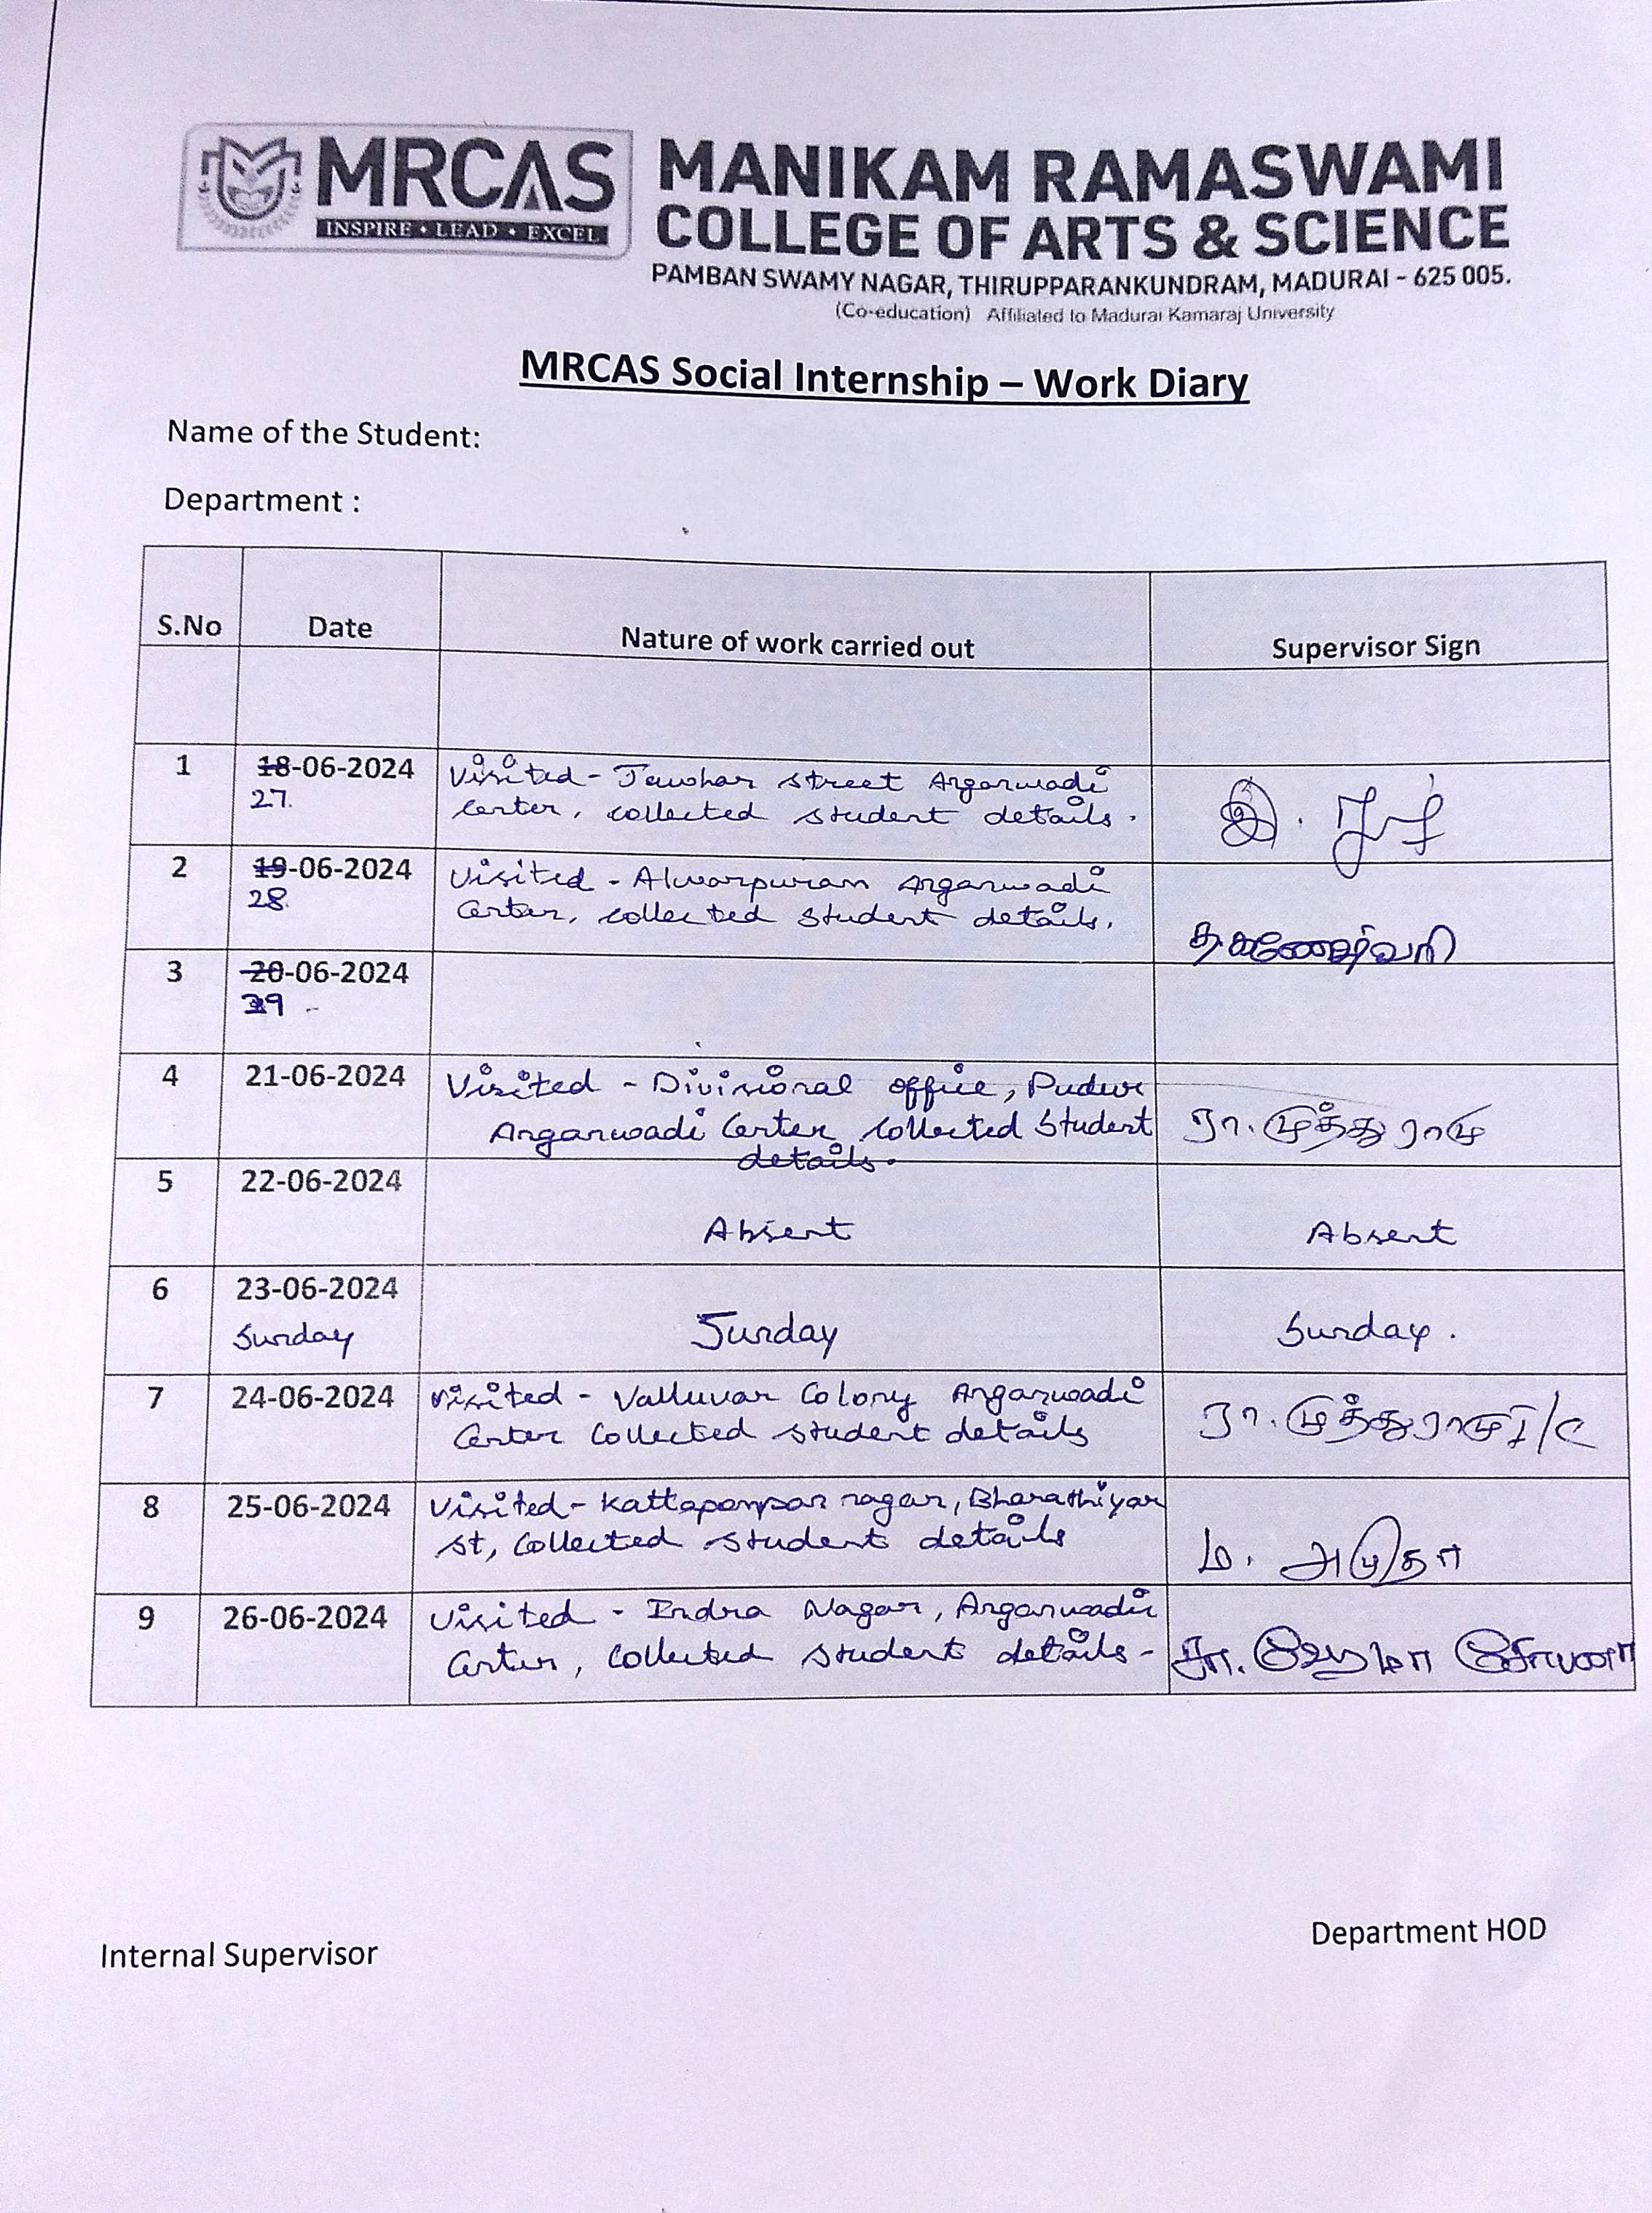 MRCAS
INSPIRE • LEAD • EXCEL
MANIKAM RAMASWAMI
COLLEGE OF ARTS & SCIENCE
PAMBAN SWAMY NAGAR, THIRUPPARANKUNDRAM, MADURAI - 625 005.
(Co-education) Affiliated to Madurai Kamaraj University
MRCAS Social Internship – Work Diary
Name of the Student:
Department :
S.No Date Nature of work carried out Supervisor Sign
1 18-06-2024 Visited - Jawhar street Anganwadi
27. Center, collected student details. இ.
2 19-06-2024 Visited - Alwarpuram Anganwadi
28 Center, collected student details.
த.கணேஷ்வரி
3 20-06-2024
29 -
4 21-06-2024 Visited - Divisional office, Pudur
Anganwadi Center collected Student ரா.முத்துராமு
details.
5 22-06-2024
Absent Absent
6 23-06-2024
Sunday Sunday Sunday.
7 24-06-2024 Visited - Valluvar Colony Anganwadi
Center Collected student details ரா.முத்துராமு I/C
8 25-06-2024 Visited - Kattapomman nagar, Bharathiyar
st, Collected student details ம. அமுதா
9 26-06-2024 Visited - Indra Nagar, Anganwadi
Center, Collected student details-
Internal Supervisor Department HOD